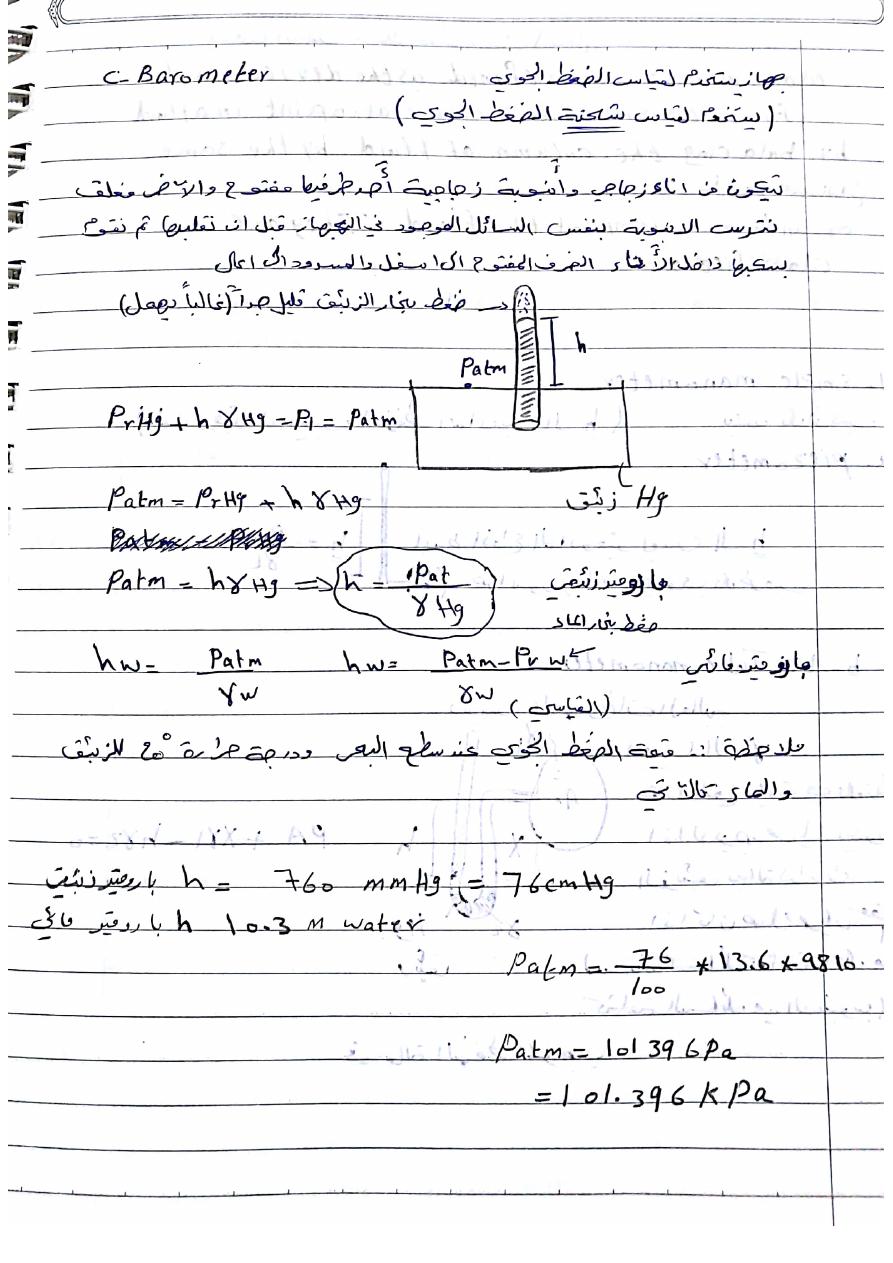 C- Barometer جهاز يستخدم لقياس الضغط الجوي
(يستخدم لقياس شحنة الضغط الجوي)
تتكون من اناء زجاجي وأنبوبة زجاجية أحد طرفيها مفتوح والآخر مغلق
تترس الانبوبة بنفس السائل الموجود في الجهاز قبل ان نقلبها ثم نقوم
بسكبها داخل الأناء الطرف المفتوح الى اسفل والمسدود الى اعلى
ضغط بخار الزئبق قليل جداً (غالباً يهمل)
h
Patm
PrHg + h γHg = P1 = Patm
Patm = PrHg + h γHg
Hg زئبق
Patm = hγHg => h = Pat / γHg بارومتر زئبقي
ضغط بخار الماء
hw = Patm / γw hw = Patm - Pv w / γw بارومتر مائي
(القياسي)
ملاحظة :. قيمة الضغط الجوي عند سطح البحر ودرجة حرارة للزئبق
والماء كالآتي
بارومتر زئبقي h = 760 mmHg = 76cmHg
بارومتر مائي h 10.3 M water
Patm = 76/100 * 13.6 * 9810
Patm = 101396Pa
= 101.396 KPa